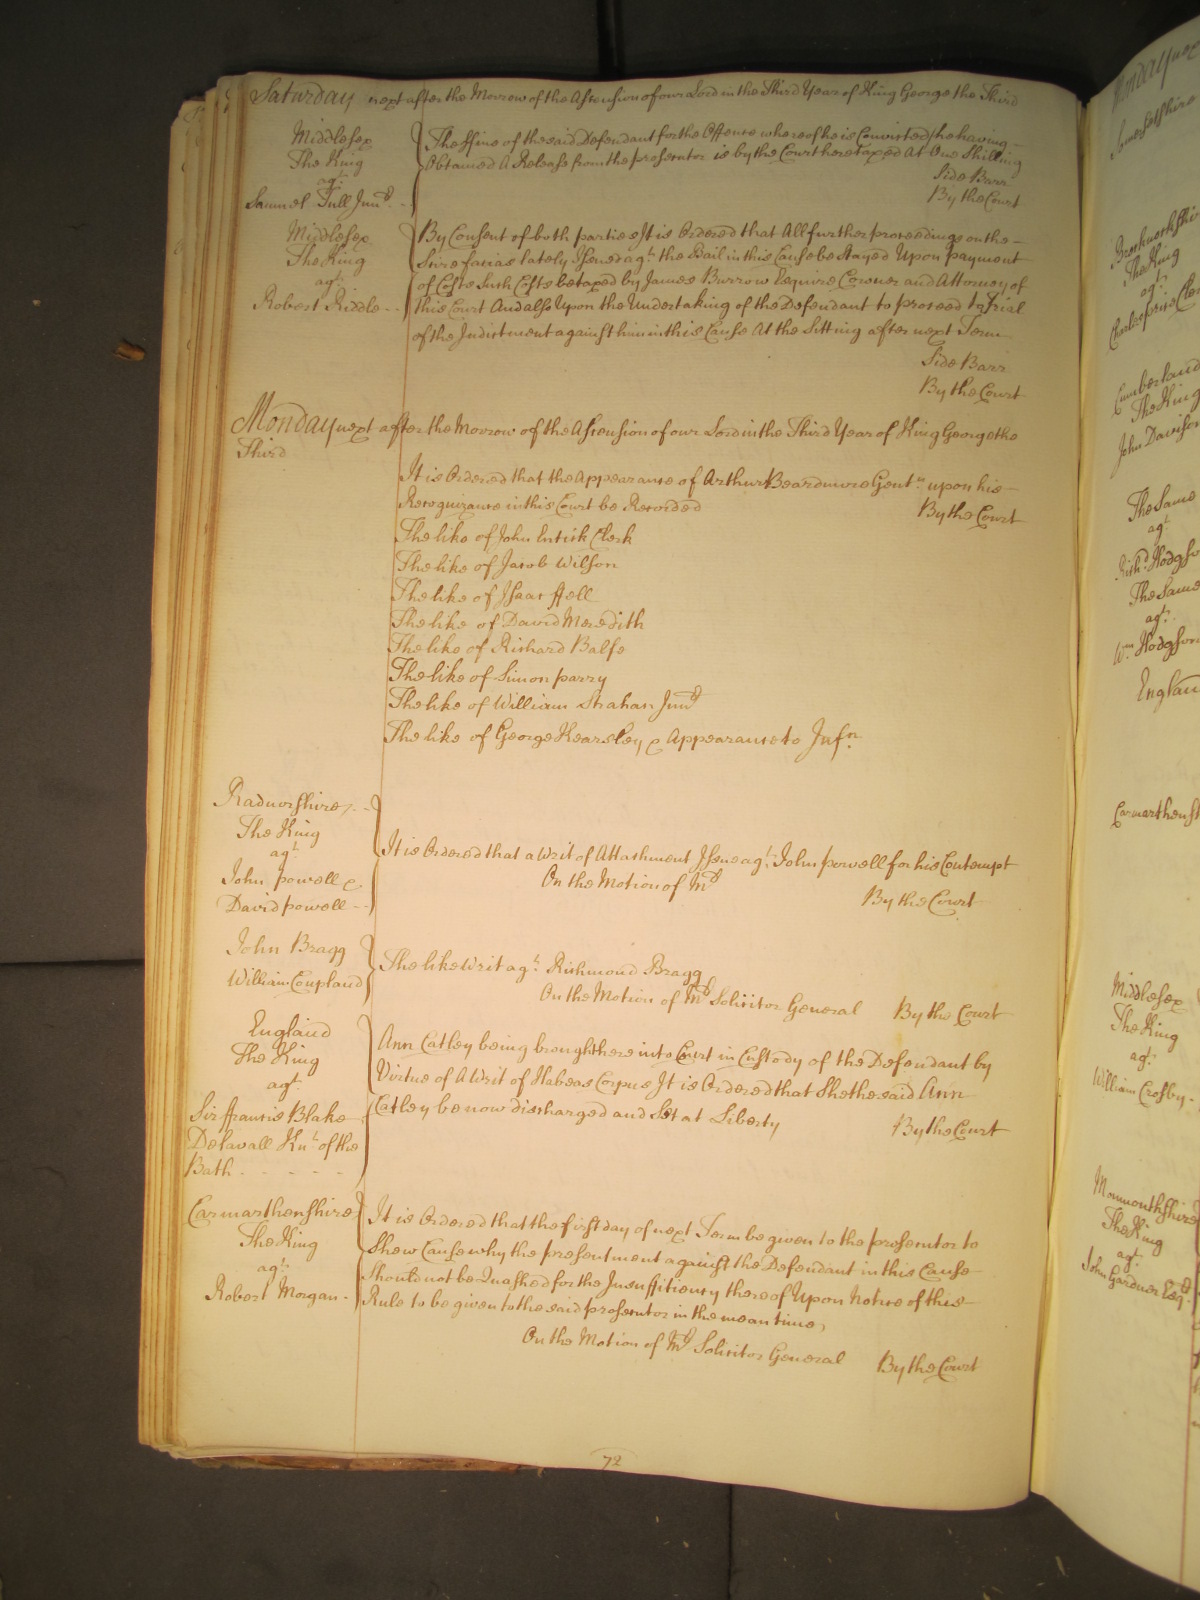 Saturday next after the Morrow of the Ascension of our Lord in the Third Year of King George the Third
Middlesex
The King
agt.
Samuel Tull Junr.
The ffine of the said Defendant for the Offence whereof he is Convicted (he having
Obtained A Release from the prosecutor is by the Court here taxed At One Shilling
Side Barr
By the Court
Middlesex
The King
agt.
Robert Riddle
By Consent of both parties It is Ordered that All further proceedings on the
Scire facias lately Issued agt. the Bail in this Cause be Stayed Upon payment
of Costs Such Costs be taxed by James Burrow Esquire Coroner and Attorney of
this Court And also Upon the Undertaking of the Defendant to proceed to Trial
of the Indictment against him in this Cause At the Sitting after next Term
Side Barr
By the Court
Monday next after the Morrow of the Ascension of our Lord in the Third Year of King George the
Third
It is Ordered that the Appearance of Arthur Beardmore Gentn. upon his
Recognizance in this Court be Recorded
By the Court
The like of John Entick Clerk
The like of Jacob Wilson
The like of Isaac ffell
The like of David Meredith
The like of Richard Balfe
The like of Simon parry
The like of William Strahan Junr
The like of George Kearsley & Appearance to Infn.
Radnorshire
The King
agt.
John powell &
David powell
It is Ordered that a Writ of Attachment Issue agt. John powell for his Contempt
On the Motion of Mr
By the Court
John Bragg
William Coupland
The like Writ agt. Richmond Bragg
On the Motion of Mr Solicitor General By the Court
England
The King
agt.
Sir ffrancis Blake
Delavall Knt. of the
Bath
Ann Catley being brought here into Court in Custody of the Defendant by
Virtue of A Writ of Habeas Corpus It is Ordered that She the said Ann
Catley be now discharged and Set at Liberty
By the Court
Carmarthenshire
The King
agt.
Robert Morgan
It is Ordered that the first day of next Term be given to the prosecutor to
Shew Cause why the presentment against the Defendant in this Cause
Should not be Quashed for the Insufficiency thereof Upon Notice of this
Rule to be given to the said prosecutor in the mean time
On the Motion of Mr Solicitor General By the Court
72
Monday next
Somersetshire
Brecknockshire
The King
agt.
Cumberland
The King
John Davison
The Same
agt.
Richd. Hodgson
The Same
agt.
Wm. Hodgson
England
Carmarthensh
Middlesex
The King
agt.
William Crosby
Monmouthshire
The King
agt.
John Gardner Esqr.